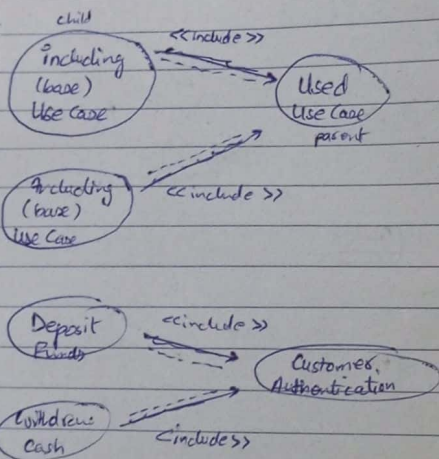 child
<<include>>
including
(base)
Use Case
Used
Use Case
parent
Including
(base)
Use Case
<<include>>
Deposit
Funds
<<include>>
Customer
Authentication
Withdraw
Cash
<include>>